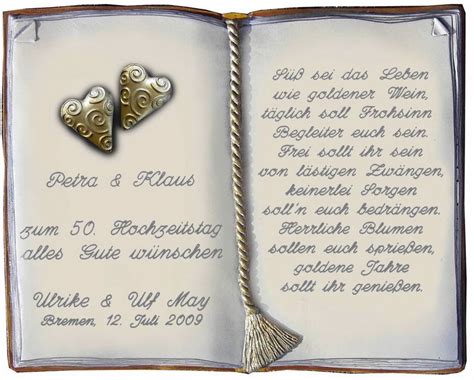 Petra & Klaus
zum 50. Hochzeitstag
alles Gute wünschen
Ulrike & Ulf May
Bremen, 12. Juli 2009
Süß sei das Leben
wie goldener Wein,
täglich soll Frohsinn
Begleiter euch sein.
Frei sollt ihr sein
von lästigen Zwängen,
keinerlei Sorgen
soll'n euch bedrängen.
Herrliche Blumen
sollen euch sprießen,
goldene Jahre
sollt ihr genießen.